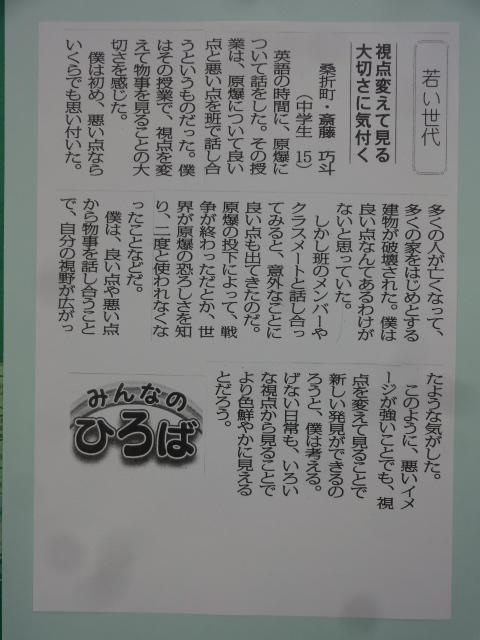 若い世代
視点変えて見る
大切さに気付く
桑折町・斎藤 巧斗
(中学生 15)
英語の時間に、原爆に
ついて話をした。その授
業は、原爆について良い
点と悪い点を班で話し合
うというものだった。僕
はその授業で、視点を変
えて物事を見ることの大
切さを感じた。
僕は初め、悪い点なら
いくらでも思い付いた。
多くの人が亡くなって、
多くの家をはじめとする
建物が破壊された。僕は
良い点なんてあるわけが
ないと思っていた。
しかし班のメンバーや
クラスメートと話し合っ
てみると、意外なことに
良い点も出てきたのだ。
原爆の投下によって、戦
争が終わっただとか、世
界が原爆の恐ろしさを知
り、二度と使われなくな
ったことなどだ。
僕は、良い点や悪い点
から物事を話し合うこと
で、自分の視野が広がっ
たような気がした。
このように、悪いイメ
ージが強いことでも、視
点を変えて見ることで
新しい発見ができるの
だろうと、僕は考える。
げない日常も、いろい
な視点から見ることで
より色鮮やかに見える
ことだろう。
みんなの
ひろば